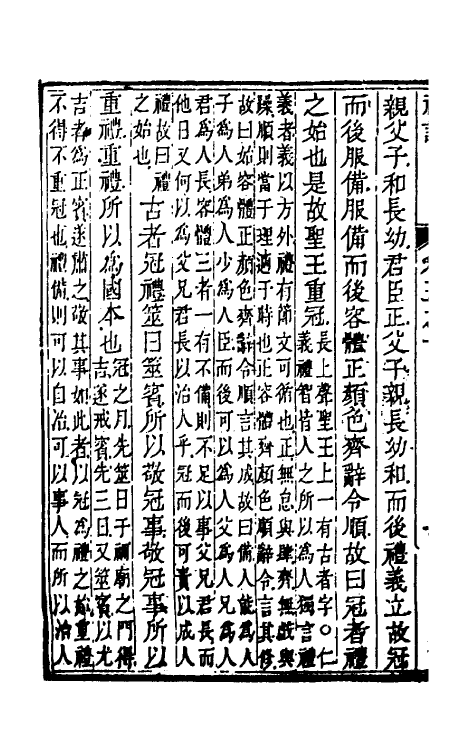 親父子和長幼君臣正父子親長幼和而後禮義立故冠
而後服備服備而後容體正顏色齊辭令順故曰冠者禮
之始也是故聖王重冠
長上聲聖王上一有古者字○仁
義禮智皆人之所以為人獨言禮
義者義以方外禮有節文可術也正無怠與肆齊無戲與
躁順則當于理適于時也正容體齊顏色順辭令言其修
故曰始容體正顏色齊辭令順言其成故曰備人能為人
子為人弟為人少為人臣而後可以為人父為人兄為人
君為人長容體三者一有不備則不足以事父兄君長而
他日又何以為父兄君長以治人乎冠而後可責以成人
禮故曰禮
之始也
古者冠禮筮日筮賓所以敬冠事敬冠事所以
重禮重禮所以為國本也
冠之月先筮日于禰廟之門得
吉遂戒賓先三日又筮賓以尤
吉者為正賓遂備之敬其事如此者以冠為禮之始重禮
不得不重冠也禮備則可以自治可以事人而所以治人